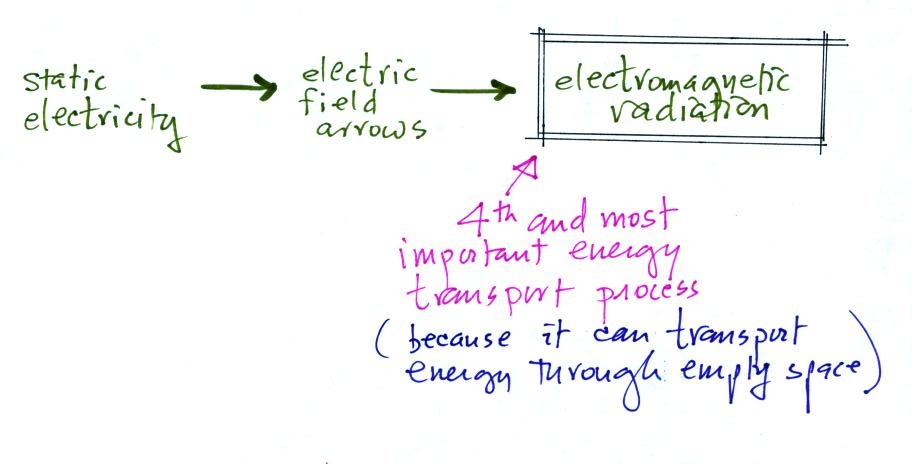 static
electricity
electric
field
arrows
electromagnetic
radiation
4th and most
important energy
transport process
(because it can transport
energy through empty space)